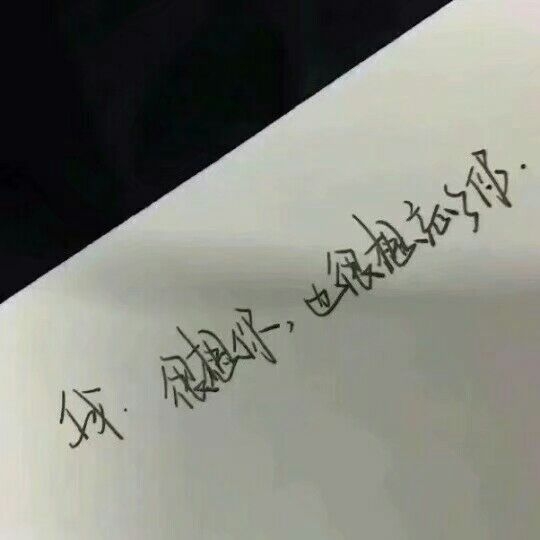 我.很想你,也很想忘了你.